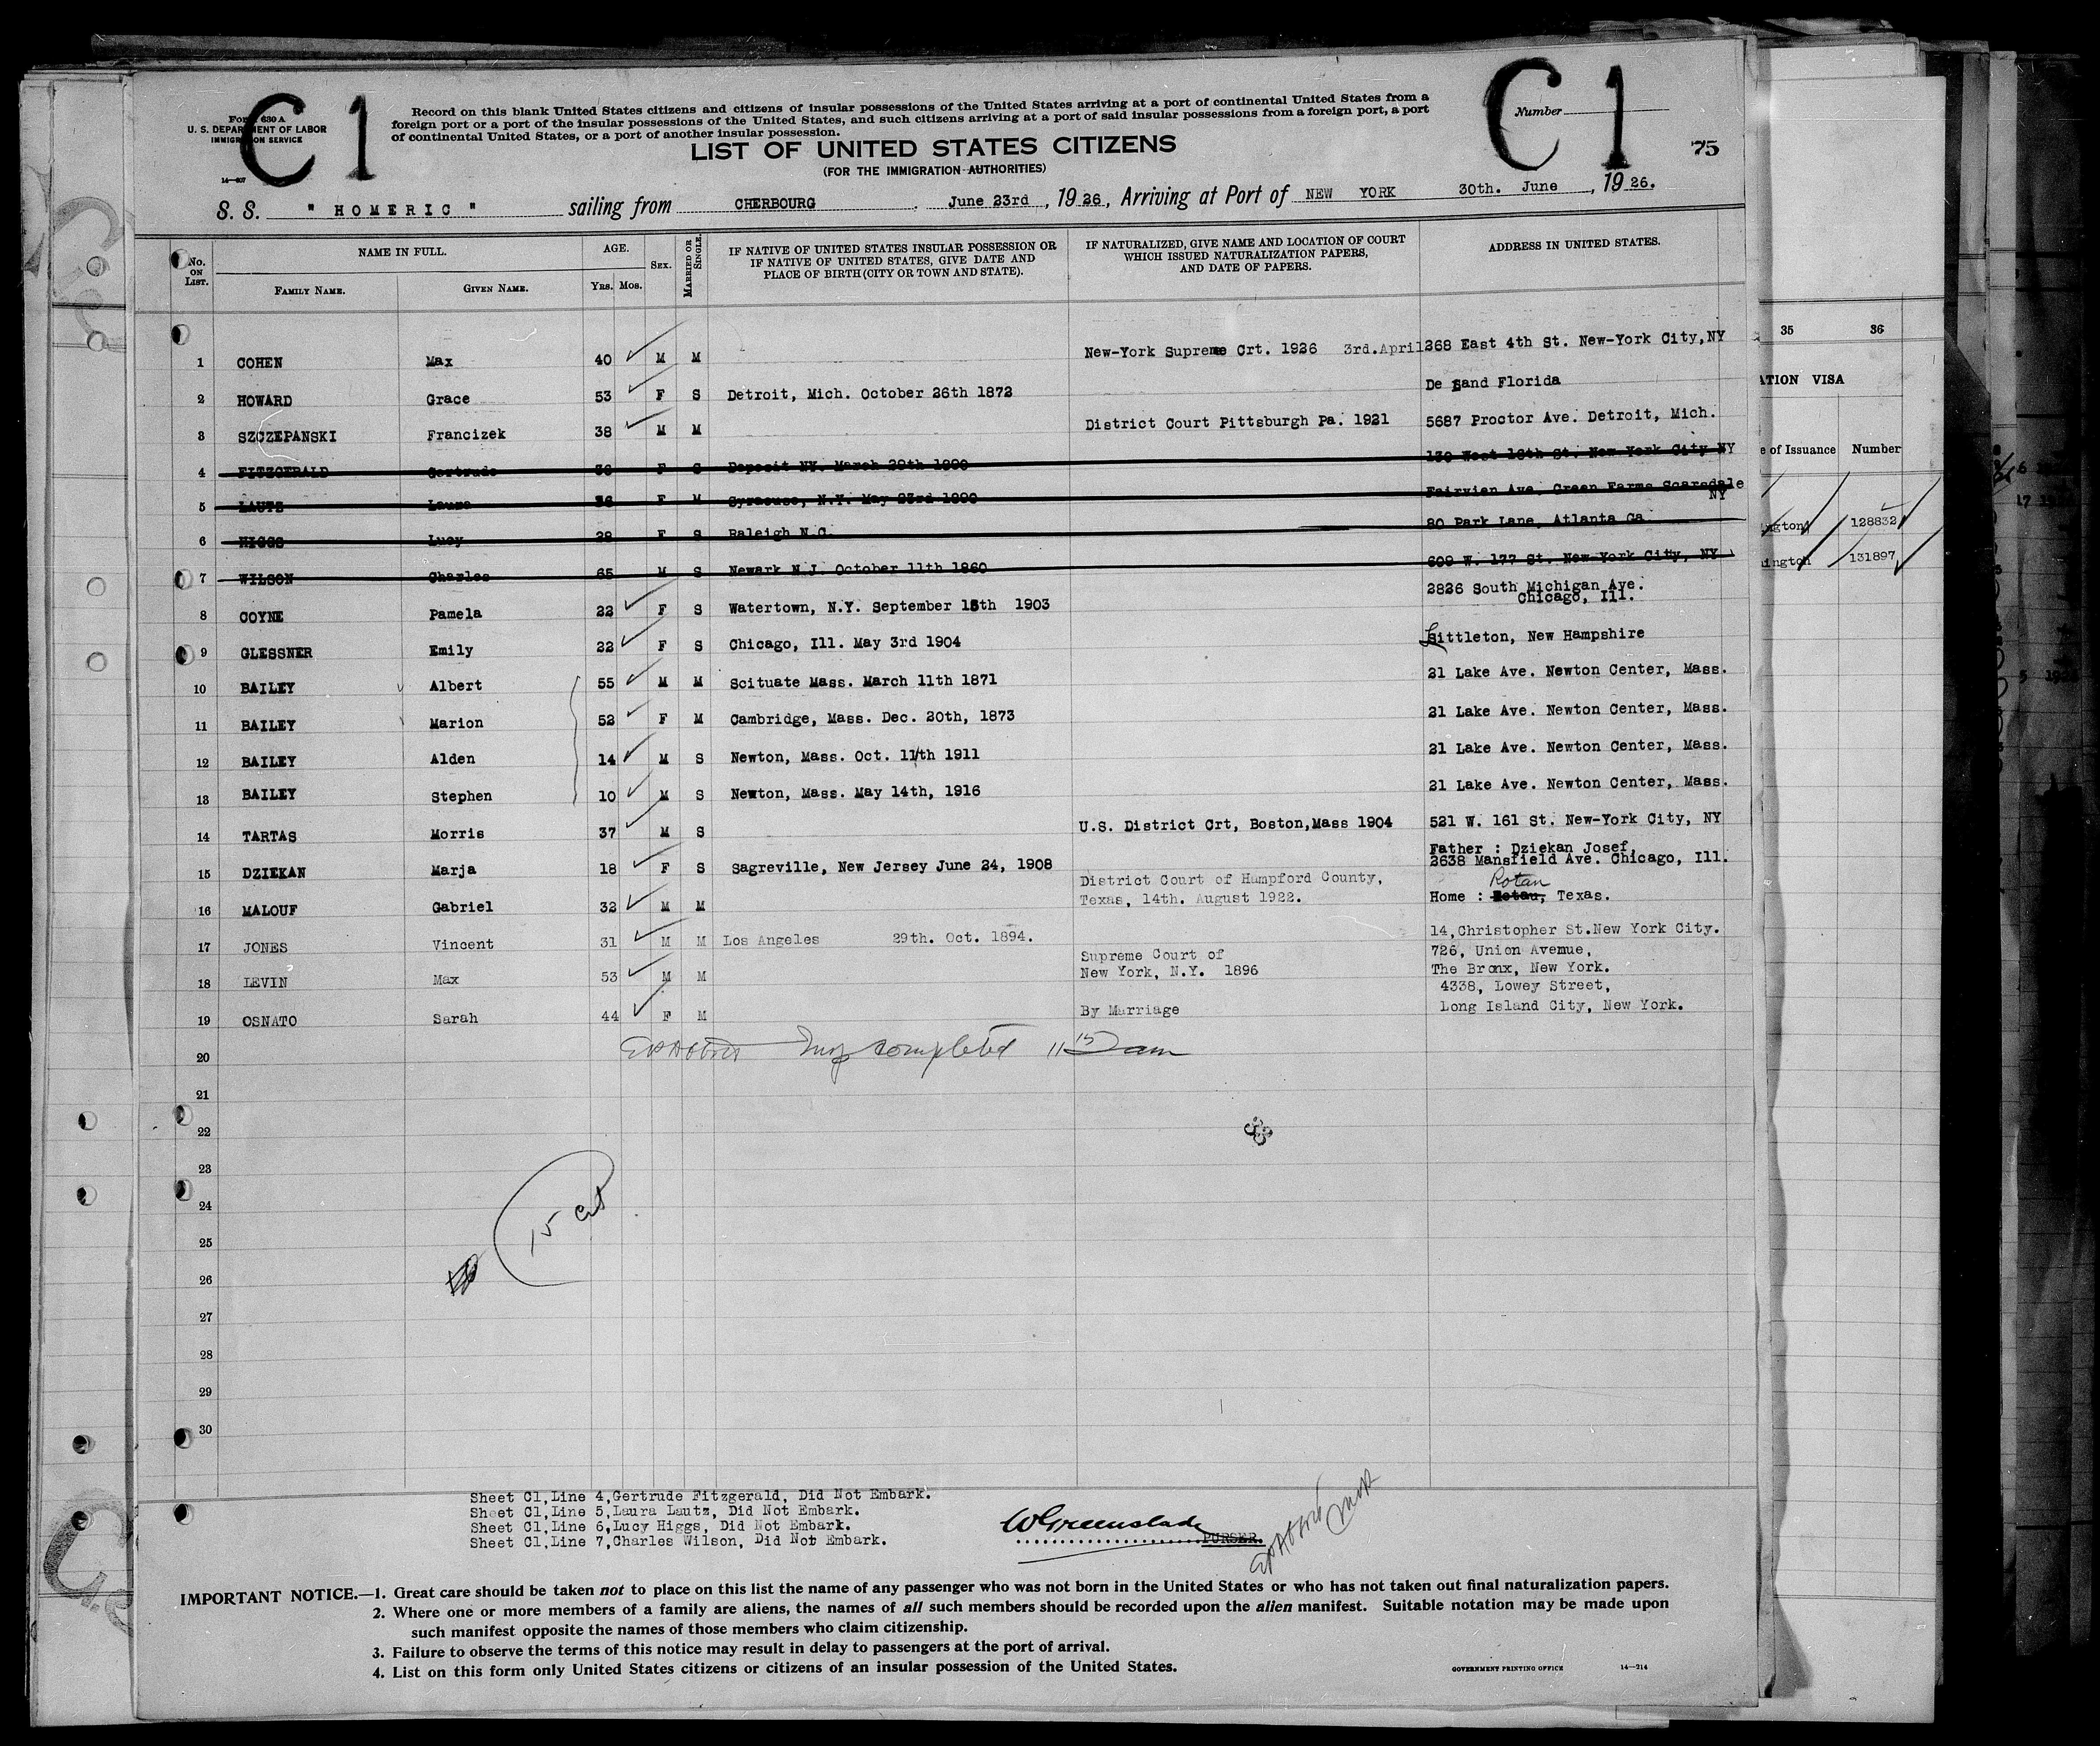 C 1
C 1
Form 630 A
U. S. DEPARTMENT OF LABOR
IMMIGRATION SERVICE
14—607
Record on this blank United States citizens and citizens of insular possessions of the United States arriving at a port of continental United States from a
foreign port or a port of the insular possessions of the United States, and such citizens arriving at a port of said insular possessions from a foreign port, a port
of continental United States, or a port of another insular possession.
Number
75
LIST OF UNITED STATES CITIZENS
(FOR THE IMMIGRATION AUTHORITIES)
S. S. " HOMERIC " sailing from CHERBOURG June 23rd, 1926, Arriving at Port of NEW YORK 30th. June, 1926.
No. ON LIST. NAME IN FULL. AGE. SEX. MARRIED OR SINGLE. IF NATIVE OF UNITED STATES INSULAR POSSESSION OR IF NATIVE OF UNITED STATES, GIVE DATE AND PLACE OF BIRTH (CITY OR TOWN AND STATE). IF NATURALIZED, GIVE NAME AND LOCATION OF COURT WHICH ISSUED NATURALIZATION PAPERS, AND DATE OF PAPERS. ADDRESS IN UNITED STATES.
FAMILY NAME. GIVEN NAME. YRS. MOS.
1 COHEN Max 40 M M New-York Supreme Crt. 1926 3rd.April 268 East 4th St. New-York City,NY
2 HOWARD Grace 53 F S Detroit, Mich. October 26th 1872 De Land Florida
3 SZCZEPANSKI Francizek 38 M M District Court Pittsburgh Pa. 1921 5687 Proctor Ave. Detroit, Mich.
4 FITZGERALD Gertrude 36 F S Deposit NY. March 29th 1890 130 West 16th St. New-York City NY
5 LAUTZ Laura 36 F M Syracuse, N.Y. May 23rd 1890 Fairview Ave. Green Farms Scarsdale NY
6 HIGGS Lucy 28 F S Raleigh N.C. 80 Park Lane, Atlanta Ga.
7 WILSON Charles 65 M S Newark N.J. October 11th 1860 609 W. 177 St. New-York City, NY
8 COYNE Pamela 22 F S Watertown, N.Y. September 15th 1903 2826 South Michigan Ave. Chicago, Ill.
9 GLESSNER Emily 22 F S Chicago, Ill. May 3rd 1904 Littleton, New Hampshire
10 BAILEY Albert 55 M M Scituate Mass. March 11th 1871 21 Lake Ave. Newton Center, Mass.
11 BAILEY Marion 52 F M Cambridge, Mass. Dec. 20th, 1873 21 Lake Ave. Newton Center, Mass.
12 BAILEY Alden 14 M S Newton, Mass. Oct. 11th 1911 21 Lake Ave. Newton Center, Mass.
13 BAILEY Stephen 10 M S Newton, Mass. May 14th, 1916 21 Lake Ave. Newton Center, Mass.
14 TARTAS Morris 37 M S U.S. District Crt, Boston,Mass 1904 521 W. 161 St. New-York City, NY
15 DZIEKAN Marja 18 F S Sagreville, New Jersey June 24, 1908 Father : Dziekan Josef, 2638 Mansfield Ave. Chicago, Ill.
16 MALOUF Gabriel 32 M M District Court of Hampford County, Texas, 14th. August 1922. Home : Rotan Texas.
17 JONES Vincent 31 M M Los Angeles 29th. Oct. 1894. 14,Christopher St.New York City.
18 LEVIN Max 53 M M Supreme Court of New York, N.Y. 1896 726, Union Avenue, The Bronx, New York.
19 OSNATO Sarah 44 F M By Marriage 4338, Lowey Street, Long Island City, New York.
20 Insp completed 11 15 am
21
22
23
24
25
26
27
28
29
30
15 cit
Sheet C1,Line 4,Gertrude Fitzgerald, Did Not Embark.
Sheet C1,Line 5,Laura Lautz, Did Not Embark.
Sheet C1,Line 6,Lucy Higgs, Did Not Embark.
Sheet C1,Line 7,Charles Wilson, Did Not Embark.
WGreenslade
PURSER.
IMPORTANT NOTICE.—1. Great care should be taken not to place on this list the name of any passenger who was not born in the United States or who has not taken out final naturalization papers.
2. Where one or more members of a family are aliens, the names of all such members should be recorded upon the alien manifest. Suitable notation may be made upon
such manifest opposite the names of those members who claim citizenship.
3. Failure to observe the terms of this notice may result in delay to passengers at the port of arrival.
4. List on this form only United States citizens or citizens of an insular possession of the United States.
GOVERNMENT PRINTING OFFICE 14—214
35 36
ATION VISA
e of Issuance Number
ngton 128832
ington 131897